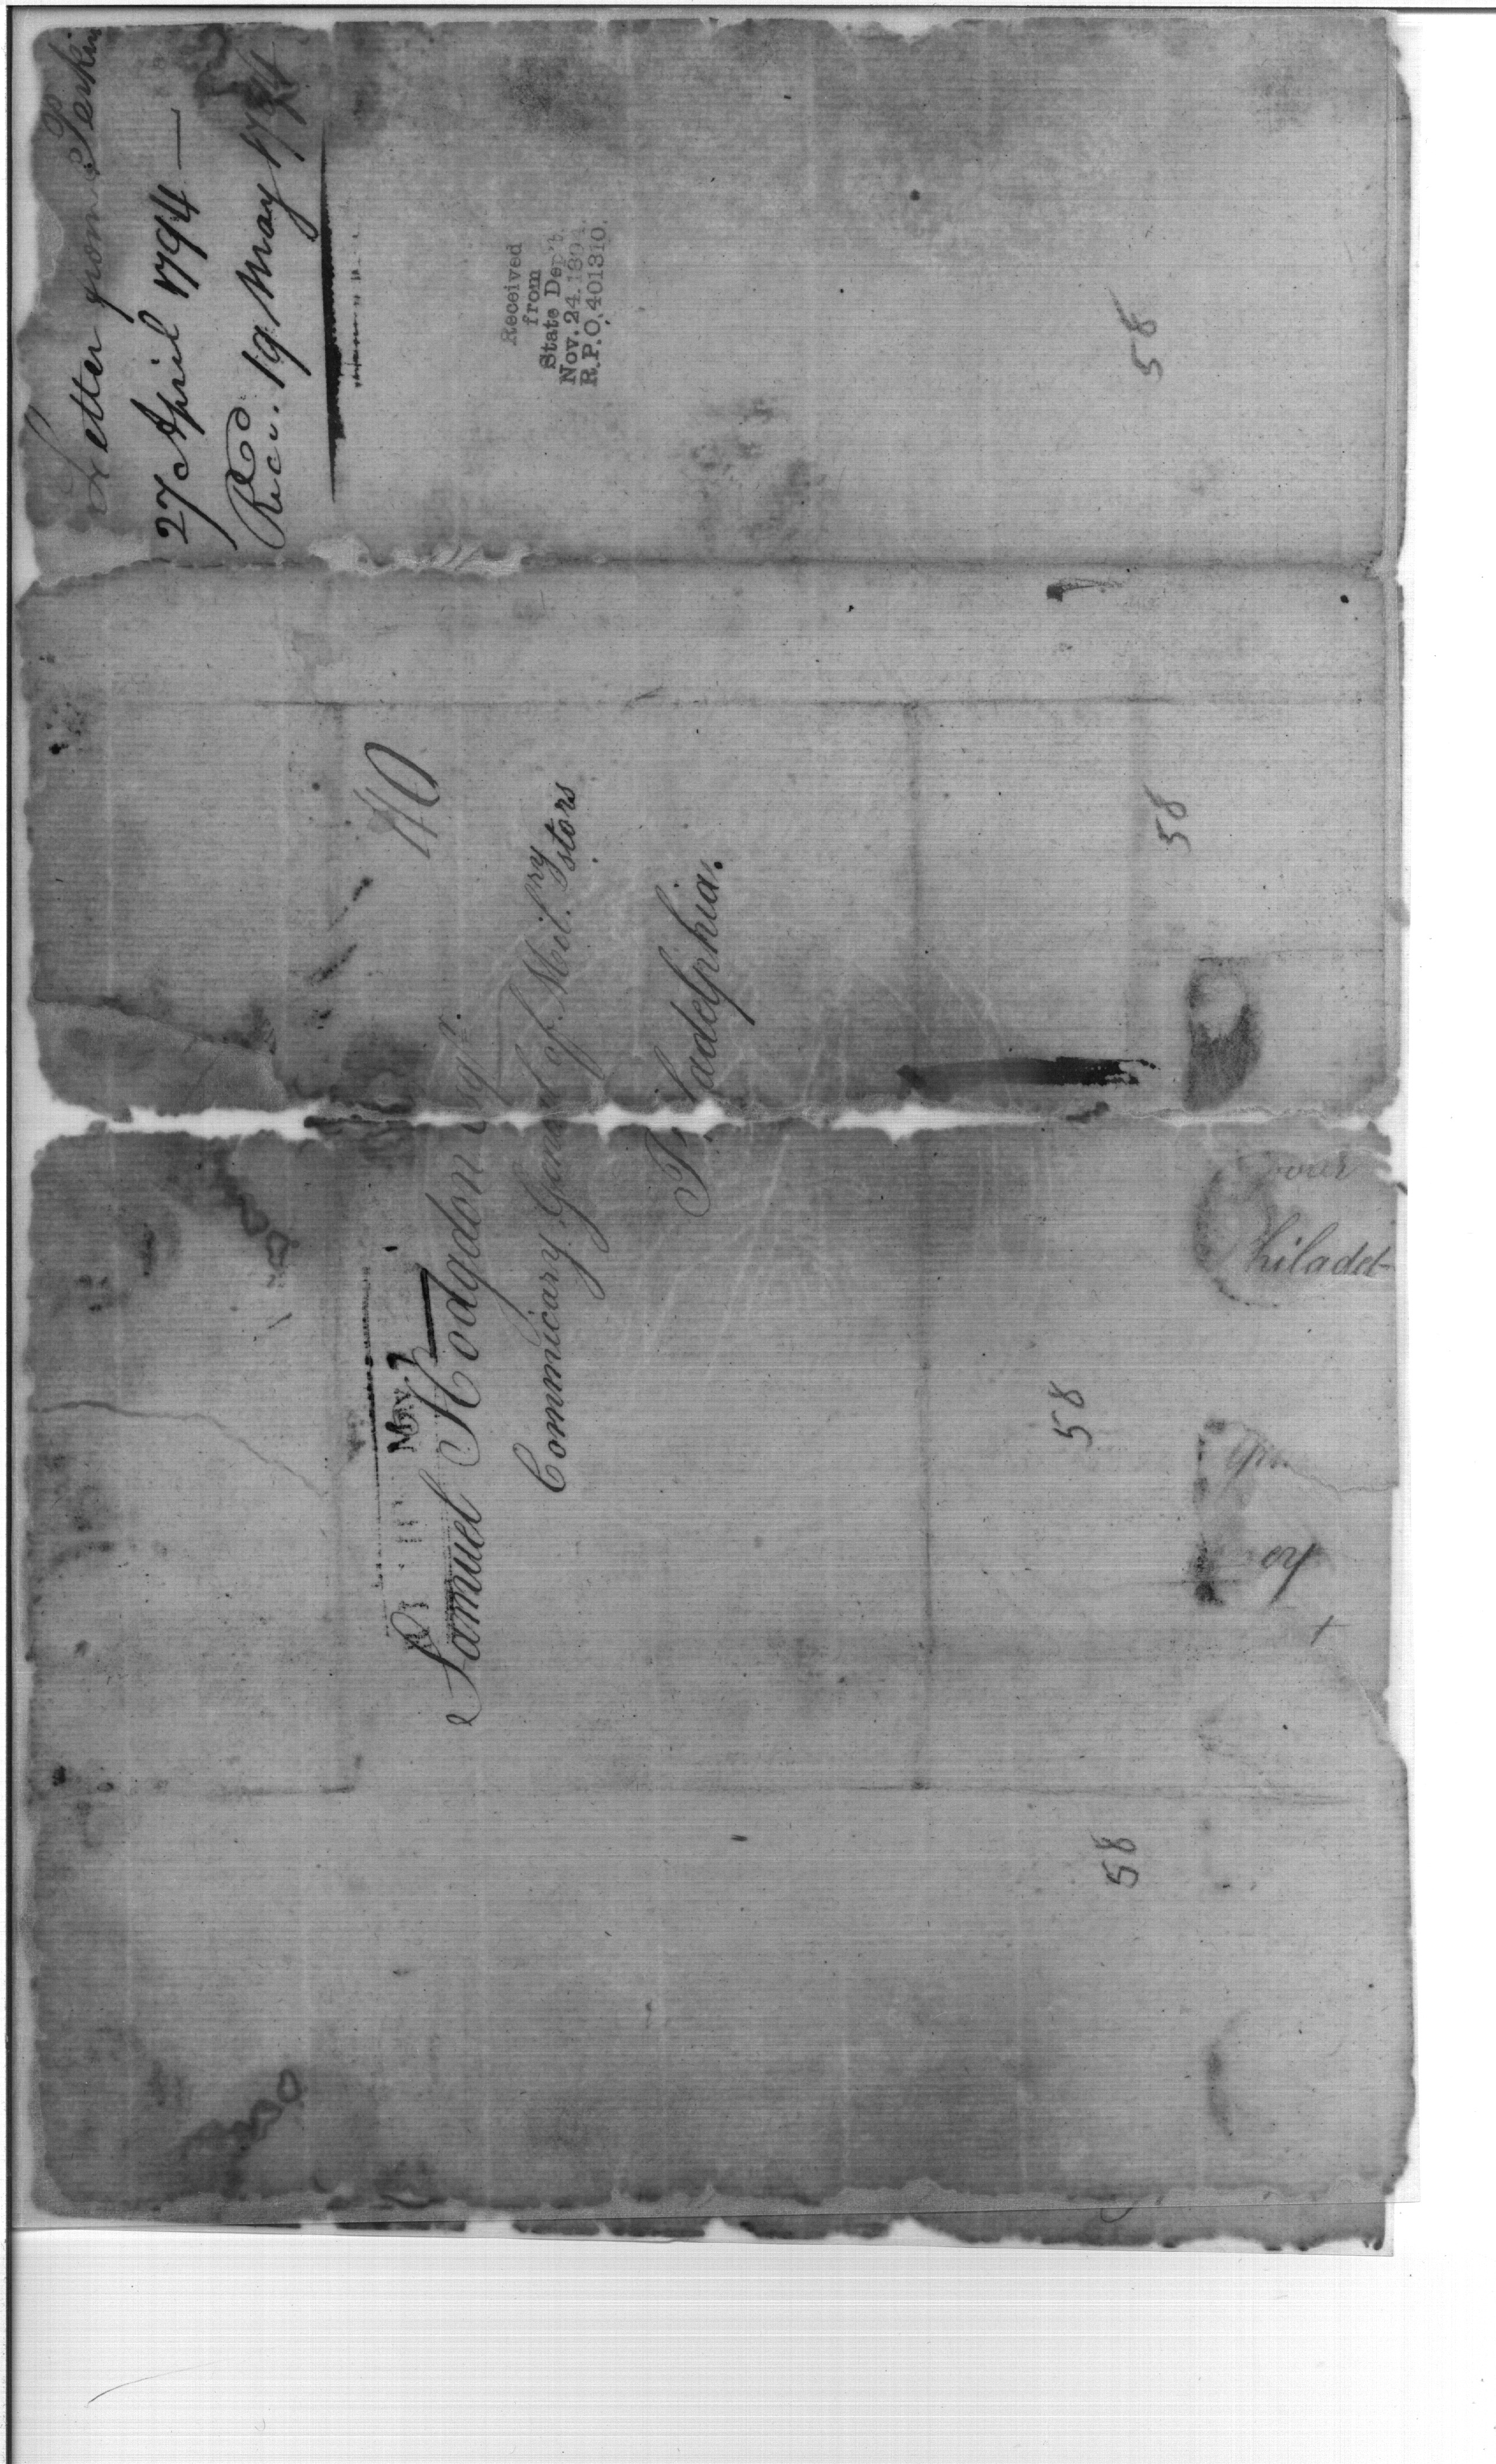 Letter from Perkin
27 April 1794 —
Rec.d 19 May 1794
Received
from
State Dep't.
Nov. 24. 1894.
R.P.O. 401310.
58
40
58
May. 7
Samuel Hodgdon Esqr.
Commicary General of Mil.ry stors
Philadelphia.
58
hiladel-
58